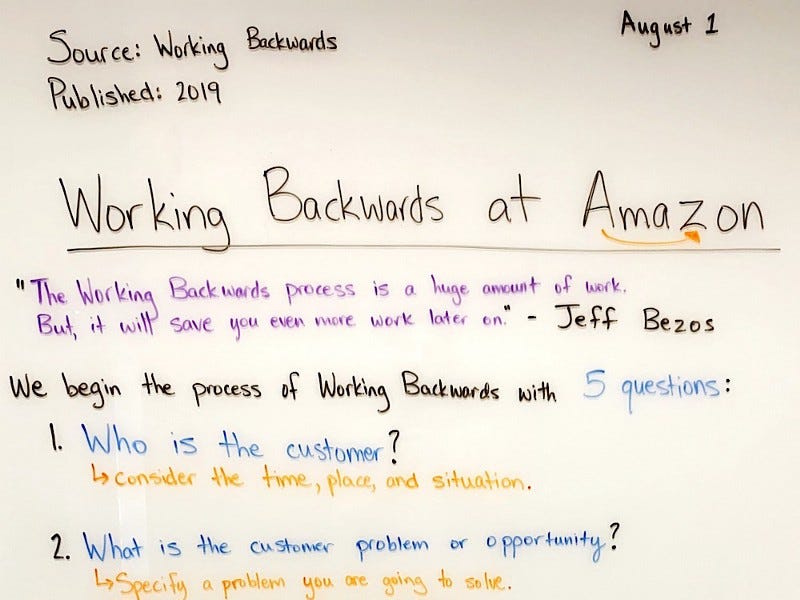 August 1
Source: Working Backwards
Published: 2019
Working Backwards at Amazon
"The Working Backwards process is a huge amount of work.
But, it will save you even more work later on." - Jeff Bezos
We begin the process of Working Backwards with 5 questions:
1. Who is the customer?
↳ consider the time, place, and situation.
2. What is the customer problem or opportunity?
↳ Specify a problem you are going to solve.